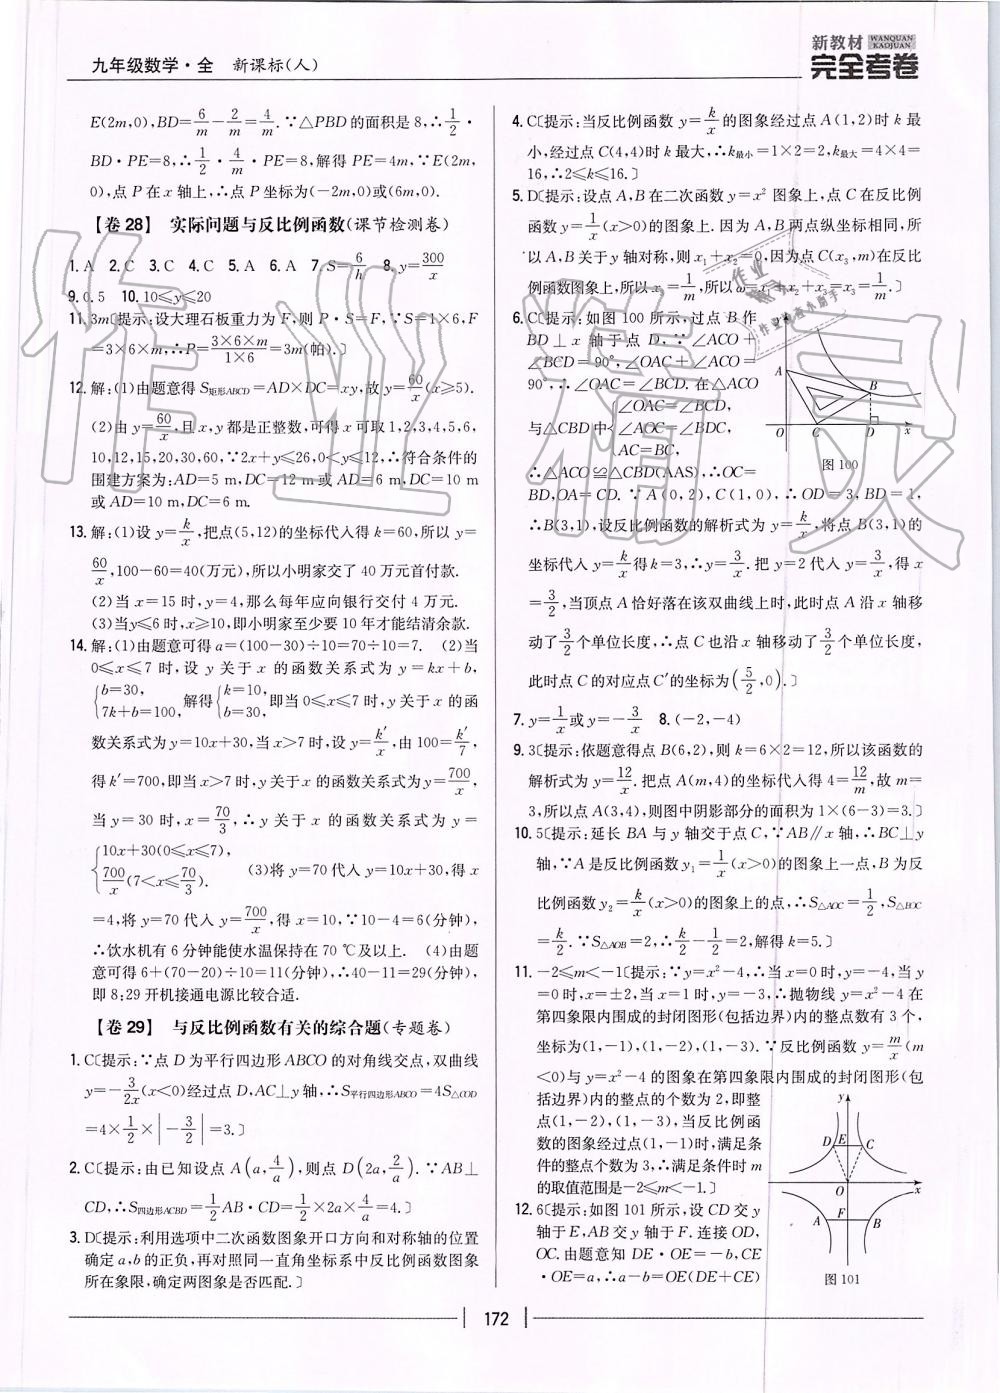 九年级数学·全 新课标(人)
新教材 WANQUAN KAOJUAN
完全考卷
E(2m,0),BD=6/m-2/m=4/m.∵△PBD的面积是8,∴1/2·
BD·PE=8,∴1/2·4/m·PE=8,解得PE=4m,∵E(2m,
0),点P在x轴上,∴点P坐标为(-2m,0)或(6m,0).
【卷28】 实际问题与反比例函数(课节检测卷)
1.A 2.C 3.C 4.C 5.A 6.A 7.S=6/h 8.y=300/x
9.0.5 10.10≤y≤20
11.3m〔提示:设大理石板重力为F,则P·S=F,∵S=1×6,F
=3×6×m,∴P=3×6×m/1×6=3m(帕).〕
12.解:(1)由题意得S矩形ABCD=AD×DC=xy,故y=60/x(x≥5).
(2)由y=60/x,且x,y都是正整数,可得x可取1,2,3,4,5,6,
10,12,15,20,30,60,∵2x+y≤26,0<y≤12,∴符合条件的
围建方案为:AD=5 m,DC=12 m或AD=6 m,DC=10 m
或AD=10 m,DC=6 m.
13.解:(1)设y=k/x,把点(5,12)的坐标代入得k=60,所以y=
60/x,100-60=40(万元),所以小明家交了40万元首付款.
(2)当x=15时,y=4,那么每年应向银行交付4万元.
(3)当y≤6时,x≥10,即小明家至少要10年才能结清余款.
14.解:(1)由题意可得a=(100-30)÷10=70÷10=7. (2)当
0≤x≤7时,设y关于x的函数关系式为y=kx+b,
{b=30, 7k+b=100,解得{k=10, b=30,即当0≤x≤7时,y关于x的函
数关系式为y=10x+30,当x>7时,设y=k′/x,由100=k′/7,
得k′=700,即当x>7时,y关于x的函数关系式为y=700/x,
当y=30时,x=70/3,∴y关于x的函数关系式为y=
{10x+30(0≤x≤7), 700/x(7<x≤70/3). (3)将y=70代入y=10x+30,得x
=4,将y=70代入y=700/x,得x=10,∵10-4=6(分钟),
∴饮水机有6分钟能使水温保持在70 ℃及以上. (4)由题
意可得6+(70-20)÷10=11(分钟),∴40-11=29(分钟),
即8:29开机接通电源比较合适.
【卷29】 与反比例函数有关的综合题(专题卷)
1.C〔提示:∵点D为平行四边形ABCO的对角线交点,双曲线
y=-3/2x(x<0)经过点D,AC⊥y轴,∴S平行四边形ABCO=4S△COD
=4×1/2×|-3/2|=3.〕
2.C〔提示:由已知设点A(a,4/a),则点D(2a,2/a).∵AB⊥
CD,∴S四边形ACBD=1/2AB·CD=1/2×2a×4/a=4.〕
3.D〔提示:利用选项中二次函数图象开口方向和对称轴的位置
确定a,b的正负,再对照同一直角坐标系中反比例函数图象
所在象限,确定两图象是否匹配.〕
4.C〔提示:当反比例函数y=k/x的图象经过点A(1,2)时k最
小,经过点C(4,4)时k最大,∴k最小=1×2=2,k最大=4×4=
16,∴2≤k≤16.〕
5.D〔提示:设点A,B在二次函数y=x²图象上,点C在反比例
函数y=1/x(x>0)的图象上.因为A,B两点纵坐标相同,所
以A,B关于y轴对称,则x₁+x₂=0,因为点C(x₃,m)在反比
例函数图象上,所以x₃=1/m,所以ω=x₁+x₂+x₃=x₃=1/m.〕
6.C〔提示:如图100所示,过点B作
BD⊥x轴于点D,∵∠ACO+
∠BCD=90°,∠OAC+∠ACO=
90°,∴∠OAC=∠BCD.在△ACO
与△CBD中{∠OAC=∠BCD, ∠AOC=∠BDC, AC=BC,
∴△ACO≌△CBD(AAS),∴OC=
BD,OA=CD.∵A(0,2),C(1,0),∴OD=3,BD=1,
∴B(3,1),设反比例函数的解析式为y=k/x,将点B(3,1)的
坐标代入y=k/x得k=3,∴y=3/x.把y=2代入y=3/x,得x
=3/2,当顶点A恰好落在该双曲线上时,此时点A沿x轴移
动了3/2个单位长度,∴点C也沿x轴移动了3/2个单位长度,
此时点C的对应点C′的坐标为(5/2,0).〕
A B O C D x
图100
7.y=1/x或y=-3/x 8.(-2,-4)
9.3〔提示:依题意得点B(6,2),则k=6×2=12,所以该函数的
解析式为y=12/x.把点A(m,4)的坐标代入得4=12/m,故m=
3,所以点A(3,4),则图中阴影部分的面积为1×(6-3)=3.〕
10.5〔提示:延长BA与y轴交于点C,∵AB∥x轴,∴BC⊥y
轴,∵A是反比例函数y₁=1/x(x>0)的图象上一点,B为反
比例函数y₂=k/x(x>0)的图象上的点,∴S△AOC=1/2,S△BOC
=k/2.∵S△AOB=2,∴k/2-1/2=2,解得k=5.〕
11.-2≤m<-1〔提示:∵y=x²-4,∴当x=0时,y=-4,当y
=0时,x=±2,当x=1时,y=-3,∴抛物线y=x²-4在
第四象限内围成的封闭图形(包括边界)内的整点数有3个,
坐标为(1,-1),(1,-2),(1,-3).∵反比例函数y=m/x(m
<0)与y=x²-4的图象在第四象限内围成的封闭图形(包
括边界)内的整点的个数为2,即整
点(1,-2),(1,-3),当反比例函
数的图象经过点(1,-1)时,满足条
件的整点个数为3,∴满足条件时m
的取值范围是-2≤m<-1.〕
12.6〔提示:如图101所示,设CD交y
轴于E,AB交y轴于F.连接OD,
OC.由题意知DE·OE=-b,CE
·OE=a,∴a-b=OE(DE+CE)
y D E C O x A F B
图101
172
作业精灵